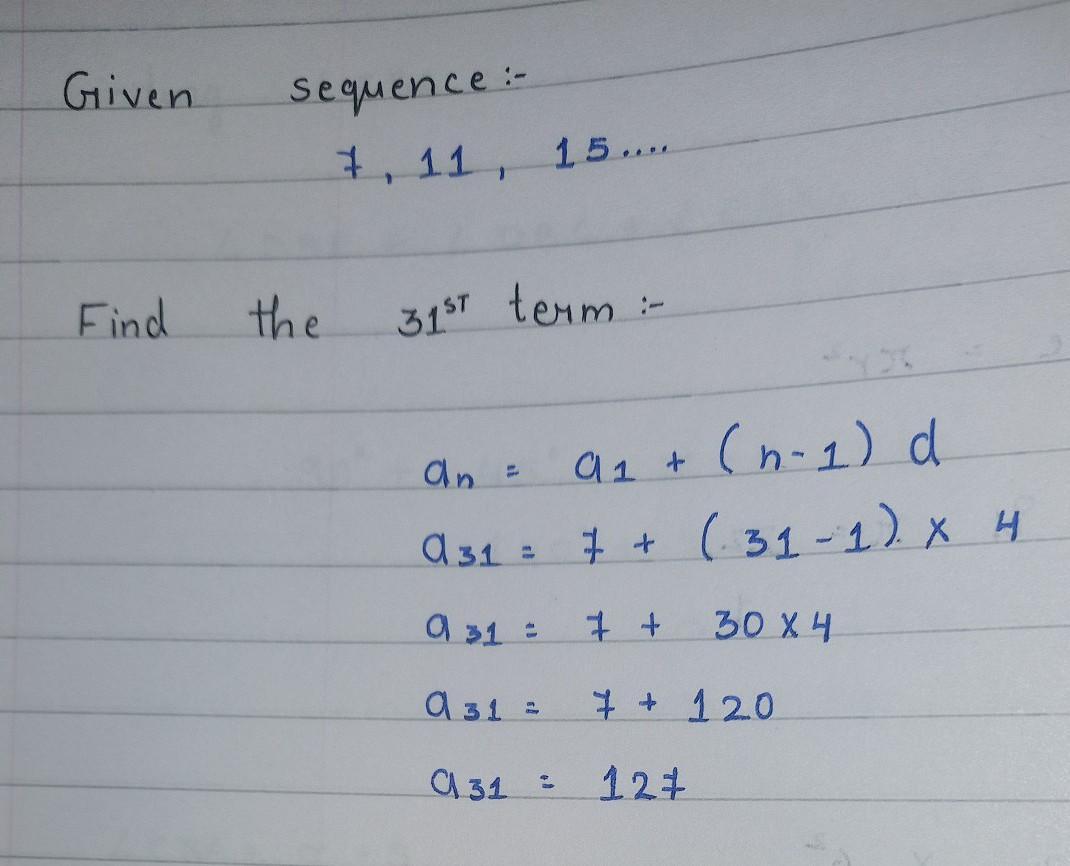 Given sequence :-
7, 11, 15....
Find the 31ST term :-
an = a1 + (n-1) d
a31 = 7 + (31-1) x 4
a31 = 7 + 30 x 4
a31 = 7 + 120
a31 = 127